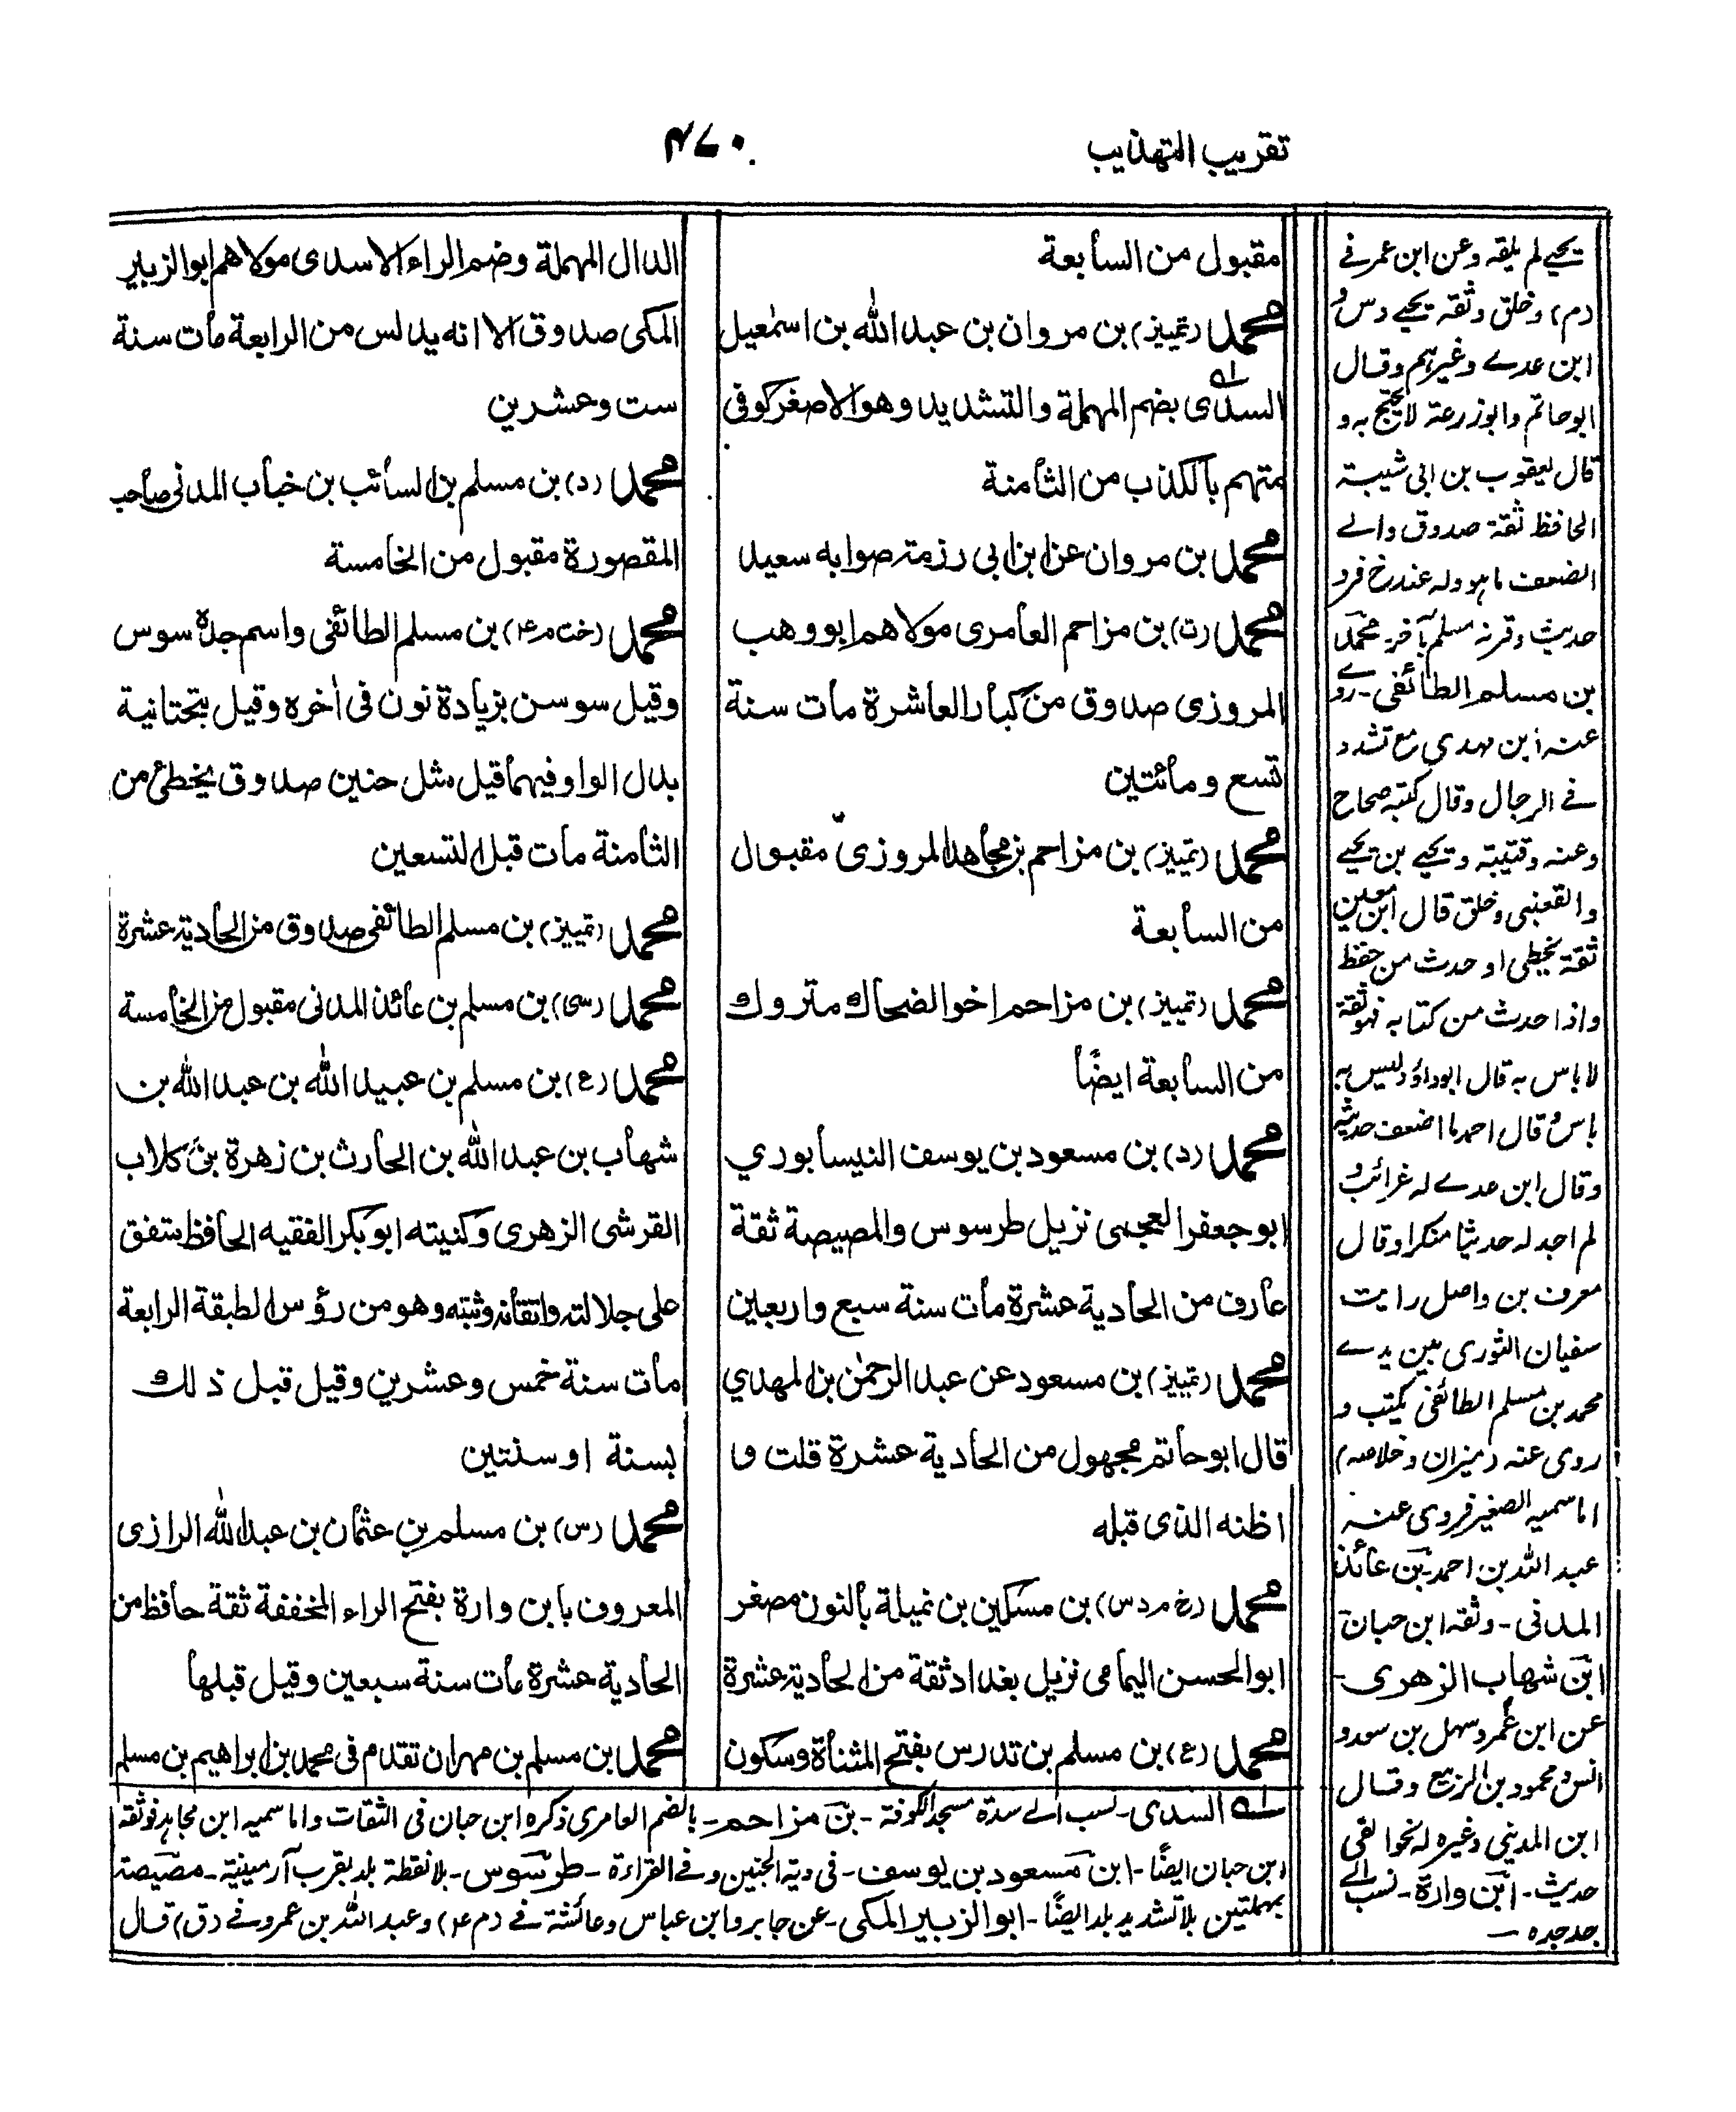 تقريب التهذيب
٤٧٠
مقبول من السابعة
محمد (تمييز) بن مروان بن عبد الله بن اسمٰعيل
السدى بضم المهملة والتشديد وهو الاصغر كوفى
متهم بالكذب من الثامنة
محمد بن مروان عن ابن ابى رزمة صوابه سعيد
محمد (ت) بن مزاحم العامرى مولاهم ابو وهب
المروزى صدوق من كبار العاشرة مات سنة
تسع ومائتين
محمد (تمييز) بن مزاحم بن مجاهد المروزى مقبول
من السابعة
محمد (تمييز) بن مزاحم اخو الضحاك متروك
من السابعة ايضًا
محمد (د) بن مسعود بن يوسف النيسابوري
ابو جعفر العجمى نزيل طرسوس والمصيصة ثقة
عارف من الحادية عشرة مات سنة سبع واربعين
محمد (تمييز) بن مسعود عن عبد الرحمٰن بن المهدي
قال ابو حاتم مجهول من الحادية عشرة قلت و
اظنه الذى قبله
محمد (خ م د س) بن مسكين بن نميلة بالنون مصغر
ابو الحسن اليمامى نزيل بغداد ثقة من الحادية عشرة
محمد (ع) بن مسلم بن تدرس بفتح المثناة وسكون
الدال المهملة وضم الراء الاسدى مولاهم ابو الزبير
المكى صدوق الا انه يدلس من الرابعة مات سنة
ست وعشرين
محمد (د) بن مسلم بن السائب بن خباب المدنى صاحب
المقصورة مقبول من الخامسة
محمد (خت م ٤) بن مسلم الطائفى واسم جده سوس
وقيل سوسن بزيادة نون فى اٰخره وقيل بتحتانية
بدل الواو فيهما قيل مثل حنين صدوق يخطئ من
الثامنة مات قبل التسعين
محمد (تمييز) بن مسلم الطائفى صدوق من الحادية عشرة
محمد (سى) بن مسلم بن عائذ المدنى مقبول من الخامسة
محمد (ع) بن مسلم بن عبيد الله بن عبد الله بن
شهاب بن عبد الله بن الحارث بن زهرة بن كلاب
القرشى الزهرى وكنيته ابو بكر الفقيه الحافظ متفق
على جلالته واتقانه وثبته وهو من رؤس الطبقة الرابعة
مات سنة خمس وعشرين وقيل قبل ذلك
بسنة او سنتين
محمد (س) بن مسلم بن عثمان بن عبد الله الرازى
المعروف بابن وارة بفتح الراء المخففة ثقة حافظ من
الحادية عشرة مات سنة سبعين وقيل قبلها
محمد بن مسلم بن مهران تقدم فى محمد بن ابراهيم بن مسلم
له السدى ـ نسب الے سدة مسجد الكوفة ـ بن مزاحم ـ بالضم العامرى ذكره ابن حبان فى الثقات واما سميه ابن مجاهد فوثقه
ابن حبان ايضًا ـ ابن مسعود بن يوسف ـ فى دية الجنين وفے القراءة ـ طرسوس ـ بلا نقطة بلد بقرب آرمينية ـ مصيصة
بمهملتين بلا تشديد بلد ايضًا ـ ابو الزبير المكى ـ عن جابر وابن عباس وعائشة فے (م ٤) وعبد الله بن عمرو فے (ق) قال
يحيے لم يلقه وعن ابن عمر فے
(م) وخلق وثقه يحيے (س) و
ابن عدے وغيرهم وقال
ابو حاتم وابو زرعة لا يحتج به و
قال يعقوب بن ابى شيبة
الحافظ ثقة صدوق والے
الضعف ما هو وله عند خ فرد
حديث وقرنه مسلم بآخر ـ محمد
بن مسلم الطائفى ـ روے
عنه ابن مهدي مع تشدد
فے الرجال وقال كتبه صحاح
وعنه وقتيبة ويحيے بن يحيے
والقعنبى وخلق قال ابن معين
ثقة يخطى اذا حدث من حفظ
واذا حدث من كتابه فهو ثقة
لا باس به قال ابو داؤد ليس به
باس وقال احمد ما اضعف حديثه
وقال ابن عدے له غرائب و
لم اجد له حديثا منكرا وقال
معرف بن واصل رايت
سفيان الثورى بين يدے
محمد بن مسلم الطائفى يكتب و
روى عنه (ميزان وخلاصه)
اما سميه الصغير فروى عنه
عبد الله بن احمد ـ بن عائذ
المدنى ـ وثقه ابن حبان
ابن شهاب الزهرى ـ
عن ابن عمر وسهل بن سعد و
انس ومحمود بن الربيع وقال
ابن المدينى وغيره له نحو الفى
حديث ـ ابن وارة ـ نسب الے
جد جده ـ